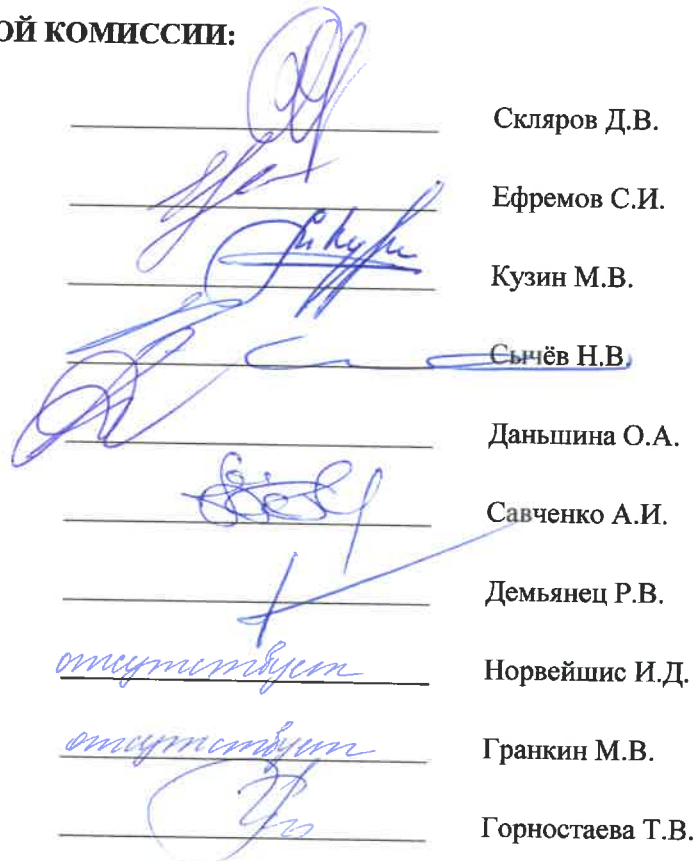 ОЙ КОМИССИИ:
Скляров Д.В.
Ефремов С.И.
Кузин М.В.
Сычёв Н.В.
Даньшина О.А.
Савченко А.И.
Демьянец Р.В.
отсутствует Норвейшис И.Д.
отсутствует Гранкин М.В.
Горностаева Т.В.